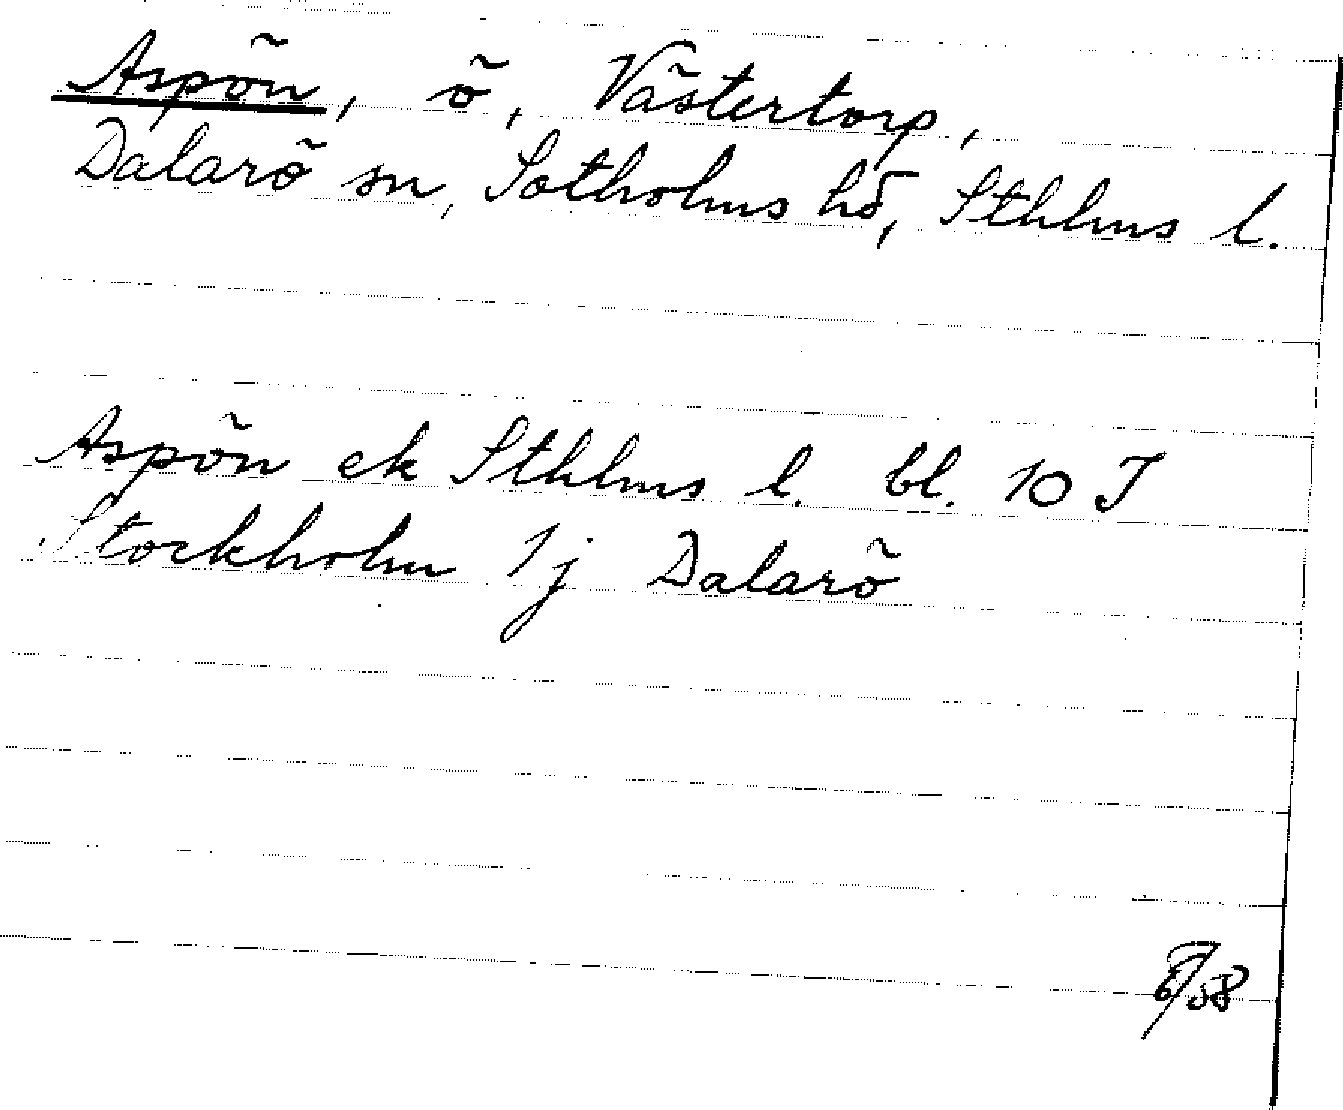 Aspön, ö, Västertorp,
Dalarö sn, Sotholms hd, Sthlms l.
Aspön ek Sthlms l. bl. 10 J
Stockholm 1j Dalarö